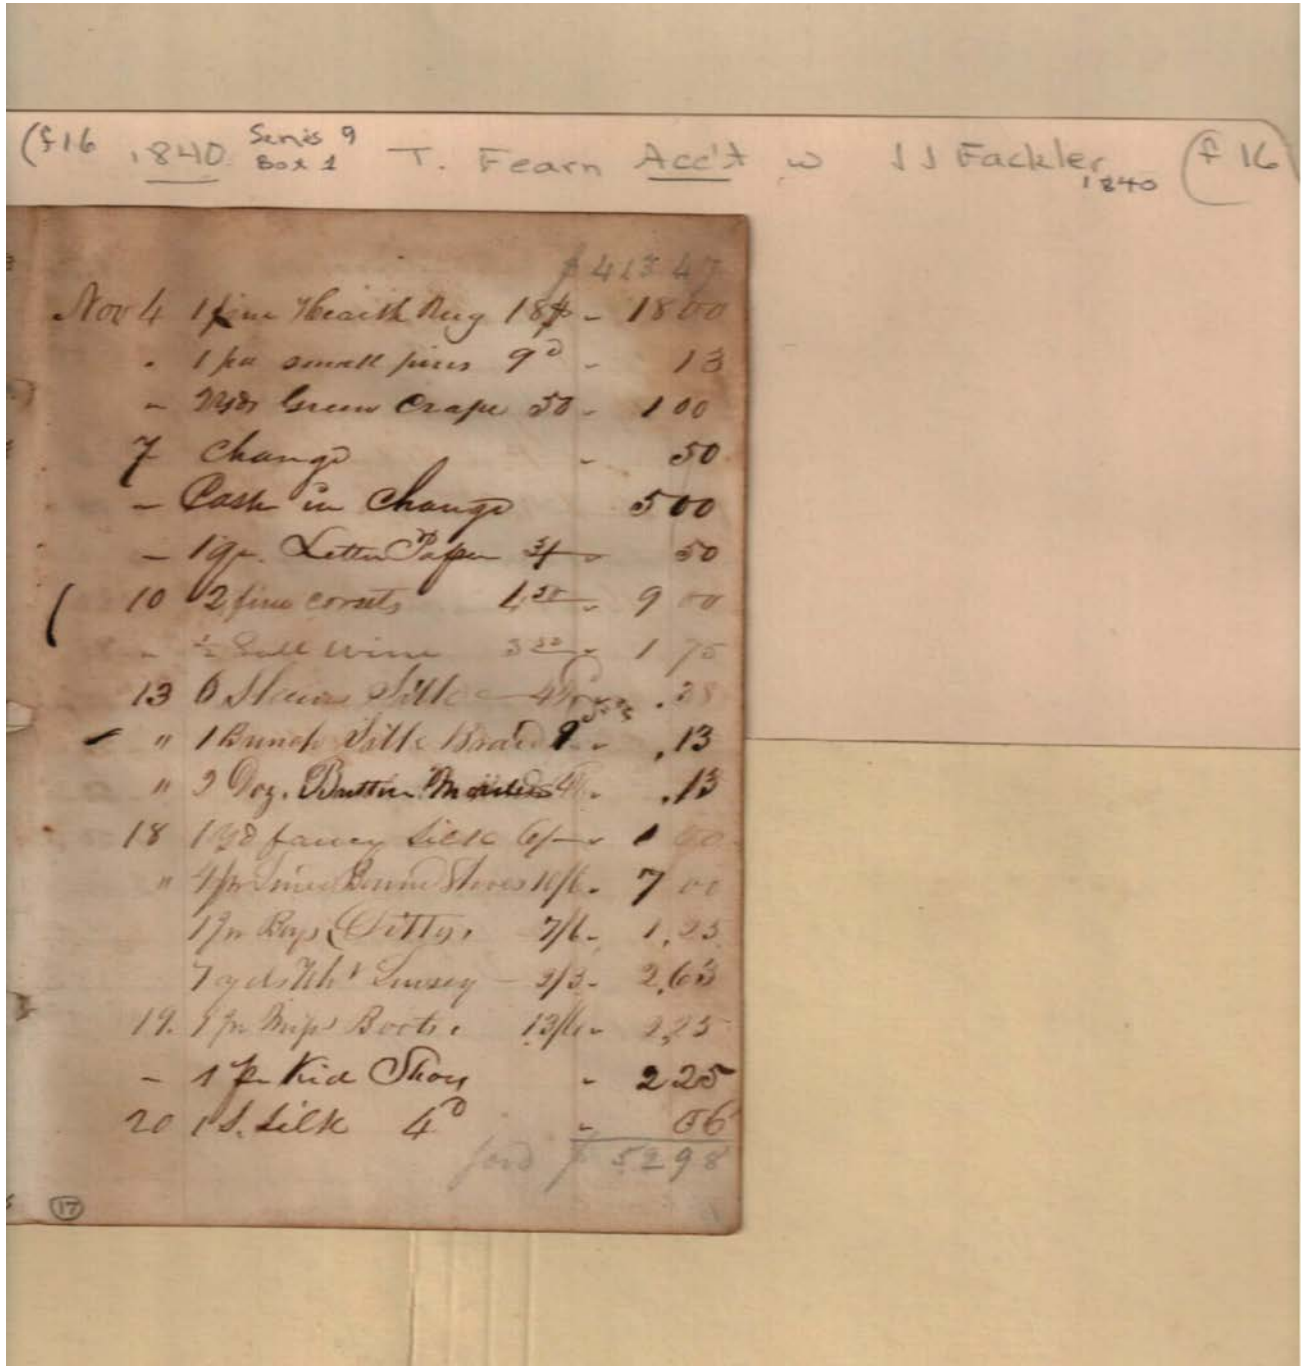 (f16 1840 Series 9 T. Fearn Acc't w J J Fackler (f 16)
Box 1 1840
$ 413 47
Nov 4 1 fine Hearth Rug 18$ - 18 00
" 1 pa small pins 9d - 13
" 2 yds Green Crape 50 - 1 00
7 Change - 50
- Cash in Change 5 00
- 1 qr. Letter Paper 3/ - 50
10 2 fine corsets 4 50 - 9 00
" ½ Gall Wine 3 50 - 1 75
13 6 Skeins Silk 4½d .38
" 1 Bunch Silk Braid 9 - .13
" 2 Doz. Button Moulds 4½ - .13
18 1 yd fancy Silk 6/- - 1 00
" 4 pr Bound Shoes 10/6 - 7 00
1 pr Boys Ditto, 7/6 - 1,25
7 yds Wht Linsey - 2/3 - 2,63
19. 1 pr Miss' Boots. 13/6 - 2,25
- 1 pr Kid Shoes - 2 25
20 1 S. Silk 4d - 06
ford $ 52 98
17